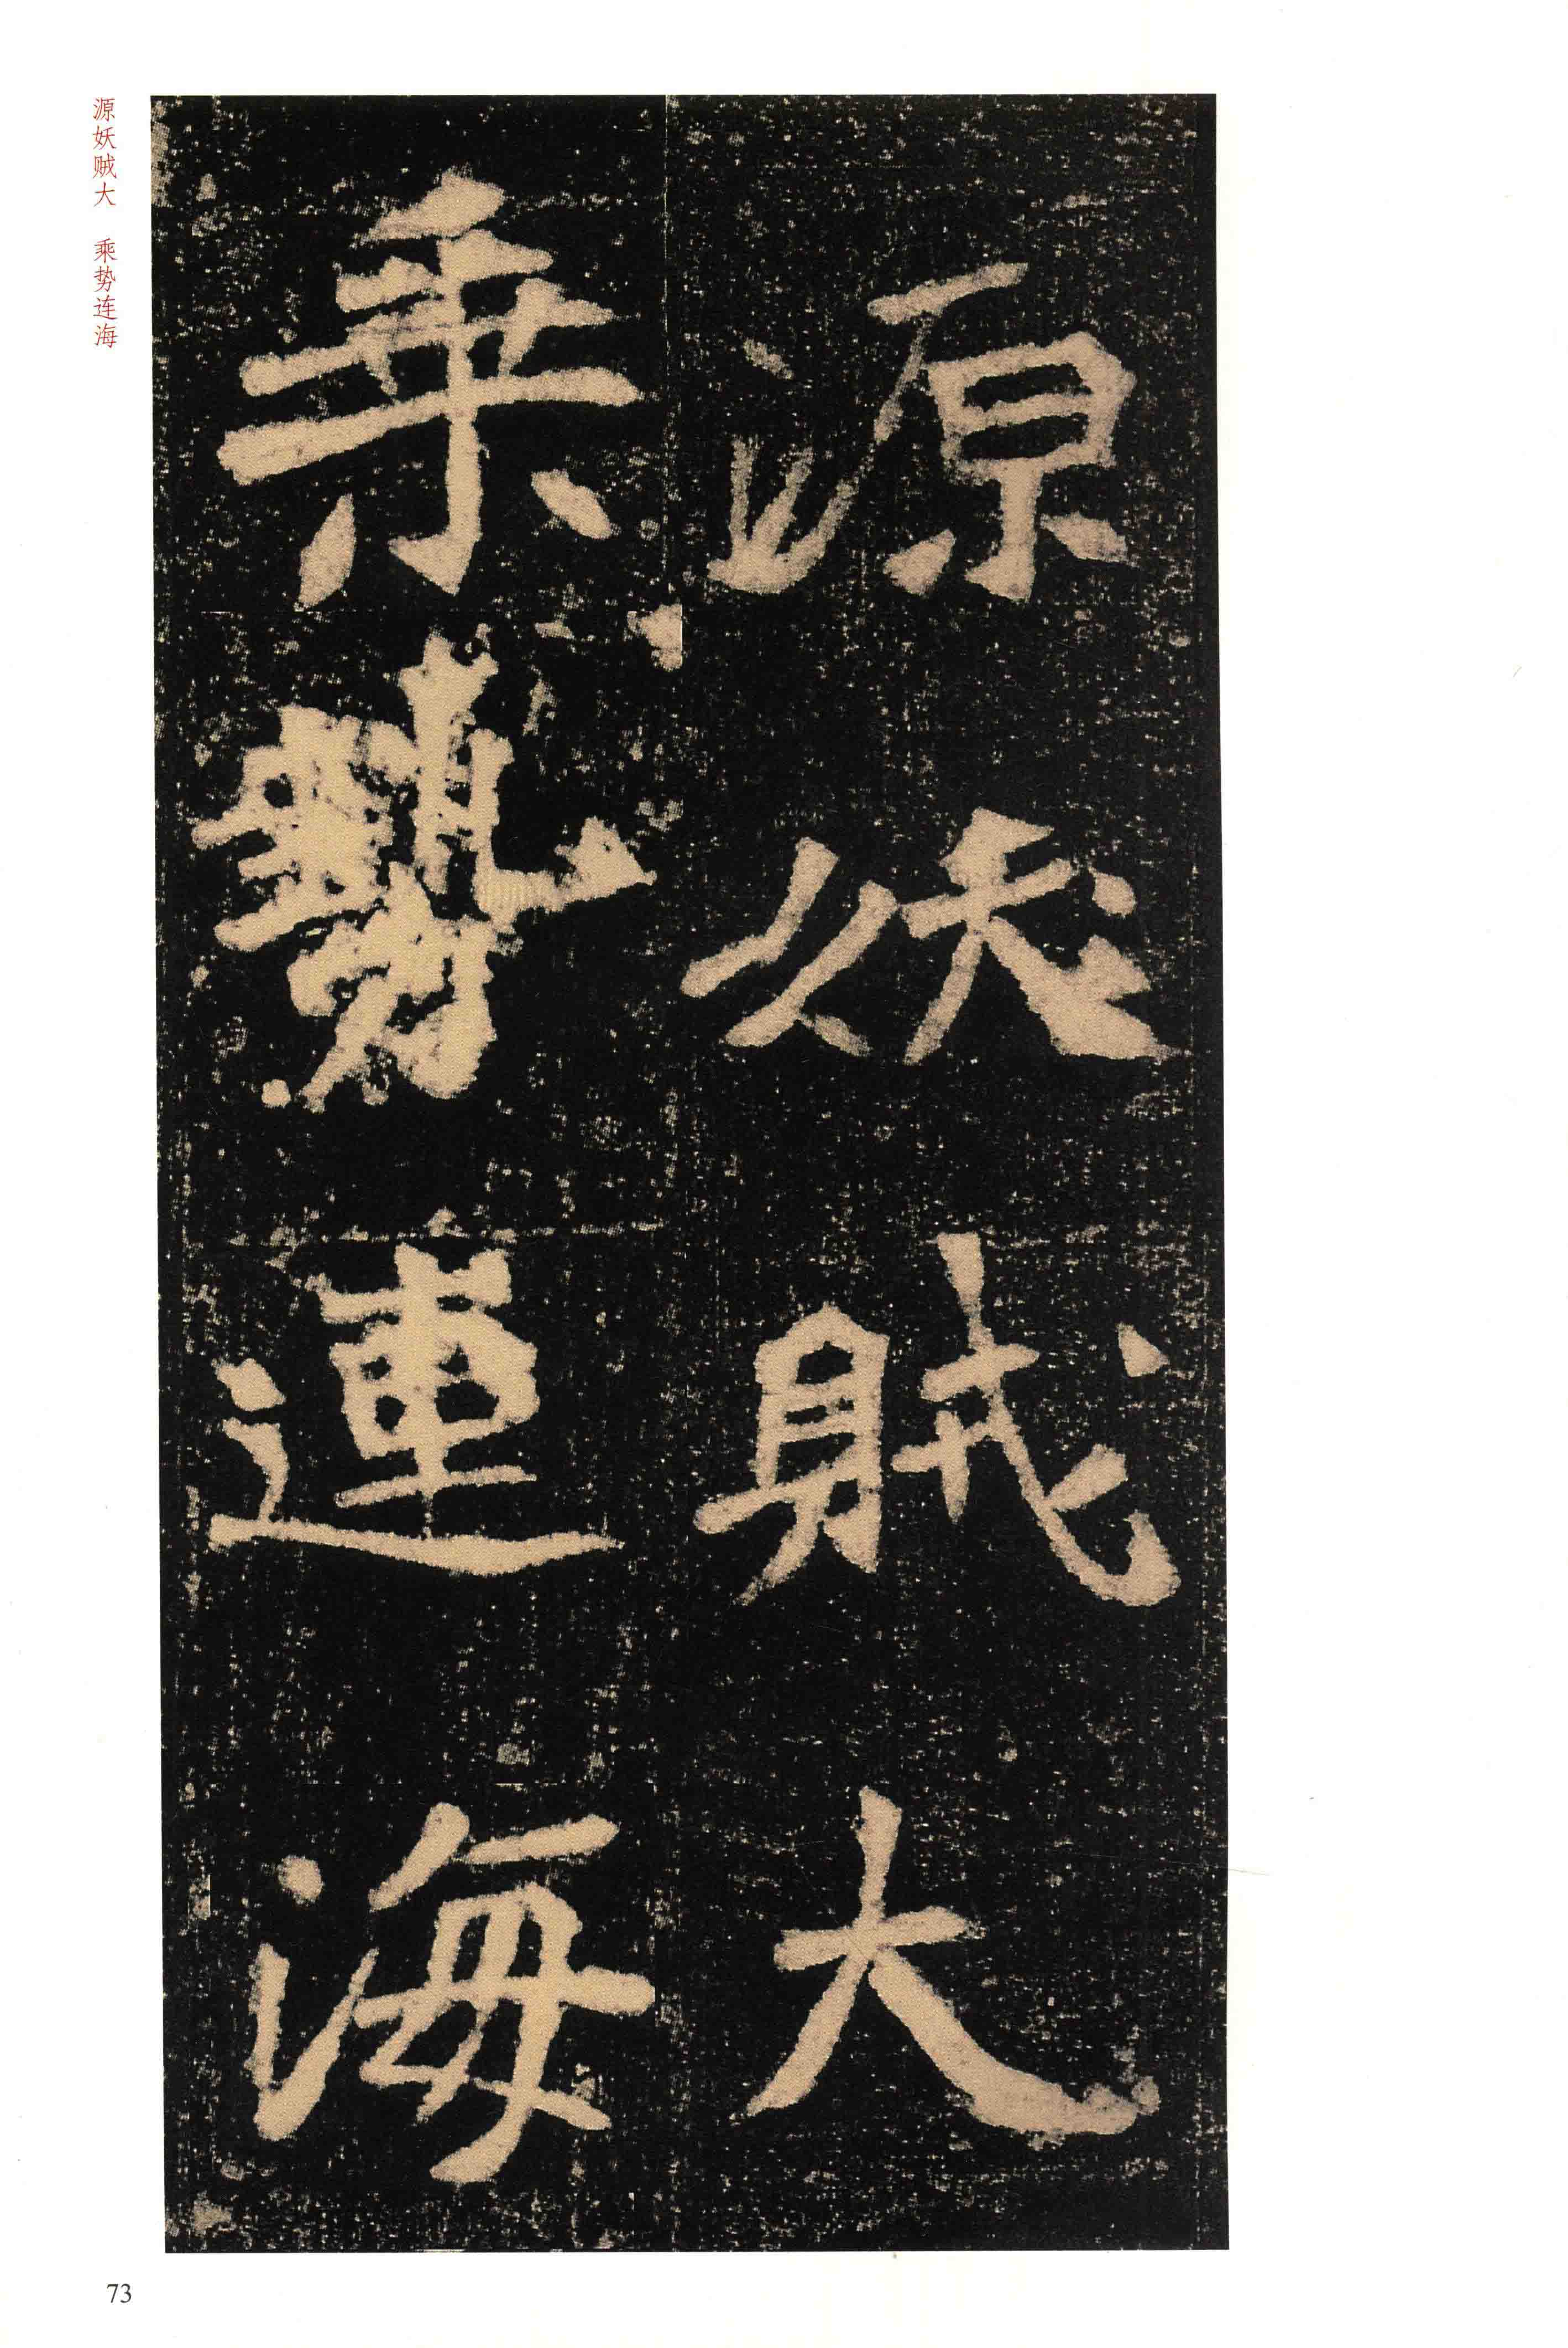 源妖賊大
乘勢連海
源妖贼大　乘势连海
73